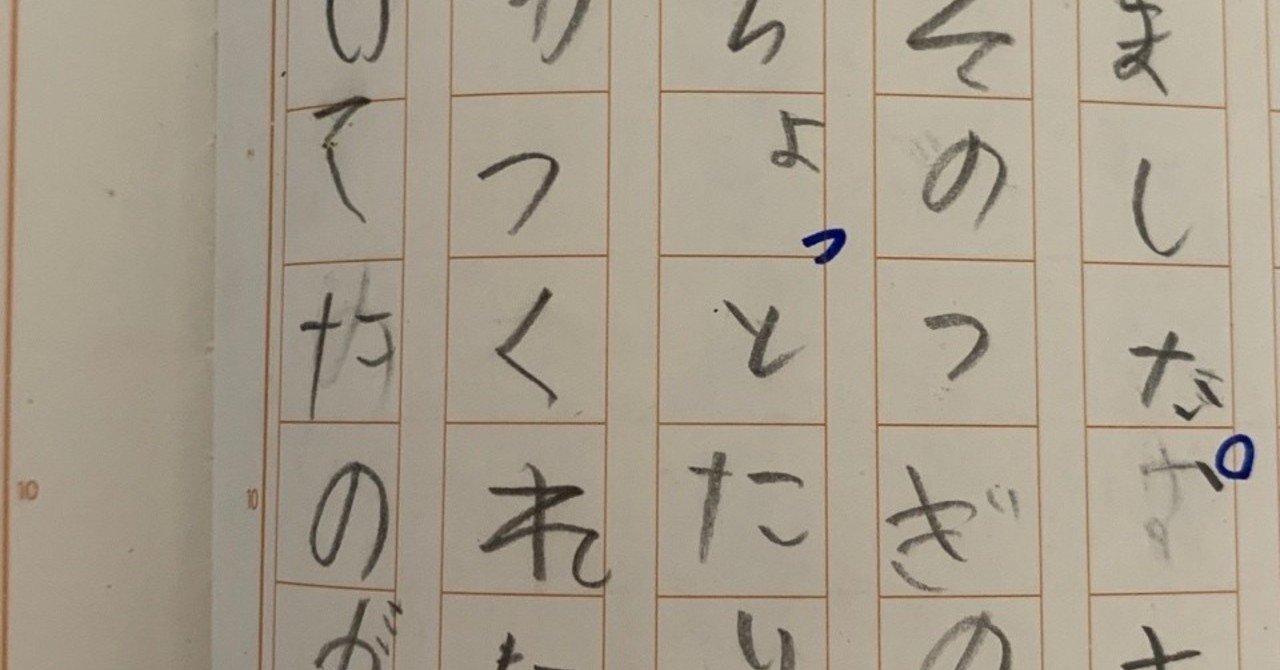 ました。
そのつぎの
ちょっとたり
つくれた
いてたのが
10
10